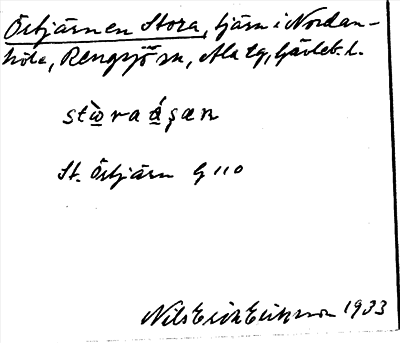 Östjärnen Stora, tjärn i Nordan-
höle, Rengsjö sn, Ala tg, Gävleb. l.
St. Östjärn G 110
Nils Erik Eriksson 1933